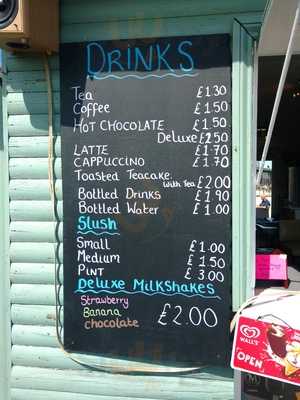 DRINKS
Tea £1.30
Coffee £1.50
HOT CHOCOLATE £1.50
Deluxe £2.50
LATTE £1.70
CAPPUCCINO £1.70
Toasted Teacake.
With tea £2.00
Bottled Drinks £1.90
Bottled Water £1.00
Slush
Small £1.00
Medium £1.50
PINT £3.00
Deluxe Milkshakes
Strawberry
Banana £2.00
chocolate
WALL'S
OPEN